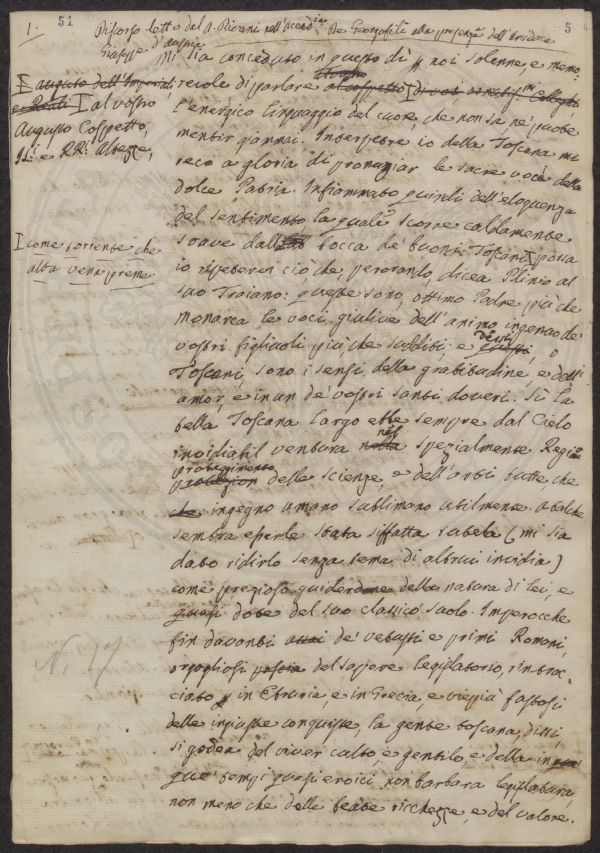 1.
51
5
Discorso letto dal A. Piovani nell'Accad.ia De Georgofili alla presenza dell'Arciduca
Giuseppe d'Austria
Mi sia conceduto in questo dì per noi solenne, e memo-
revole di parlare
al vostro
Augusto Cospetto,
II. e RR. Altezze,
l'energico linguaggio del cuore, che non sa, nè puote
mentir giammai. Interpetre io della Toscana mi
reco a gloria di pronunziar le sacre voci della
dolce Patria. Infiammato quindi dell'eloquenza
del sentimento, la quale scorre caldamente
soave dalla bocca de' buoni Toscani, possa
come torrente che
alta vena preme
io ripetervi ciò, che, perorando, dicea Plinio al
suo Traiano: queste sono, ottimo Padre più che
Monarca le voci giulive dell'animo ingenuo de'
vostri figliuoli più che sudditi; e questi, o
dessi
Toscani, sono i sensi della gratitudine, e dell'
amor, e in un de' vostri santi doveri. Sì la
bella Toscana largo ebbe sempre dal Cielo
invidiabil ventura nella spezialmente Regia
nel
proteggimento
protezion delle scienze, e dell'arti tutte, che
ingegno umano sublimano utilmente: talchè
sembra esserle stata siffatta tutela (mi sia
dato ridirlo senza tema di altrui invidia)
come prezioso guiderdone della natura di lei, e
quasi dote del suo classico suolo. Imperocchè
fin davanti de' vetusti e primi Romani,
N. 17
orgogliosi poscia del sapere legislatorio, rintrac-
ciato in Etruria, e in Grecia, e vieppiù fastosi
delle ingiuste conquiste, la gente toscana, dissi,
si godea del viver culto, e gentile, e della in
que' tempi quasi eroici non barbara legislatura,
non meno che delle beate ricchezze, e del valore.